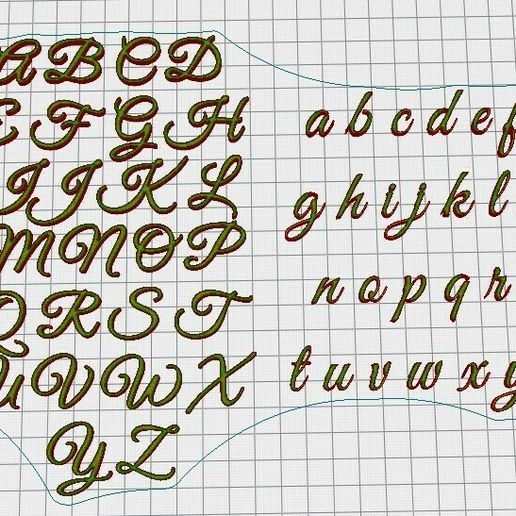 A B C D
E F G H
I J K L
M N O P
Q R S T
U V W X
Y Z
a b c d e f
g h i j k l
n o p q r
t u v w x y